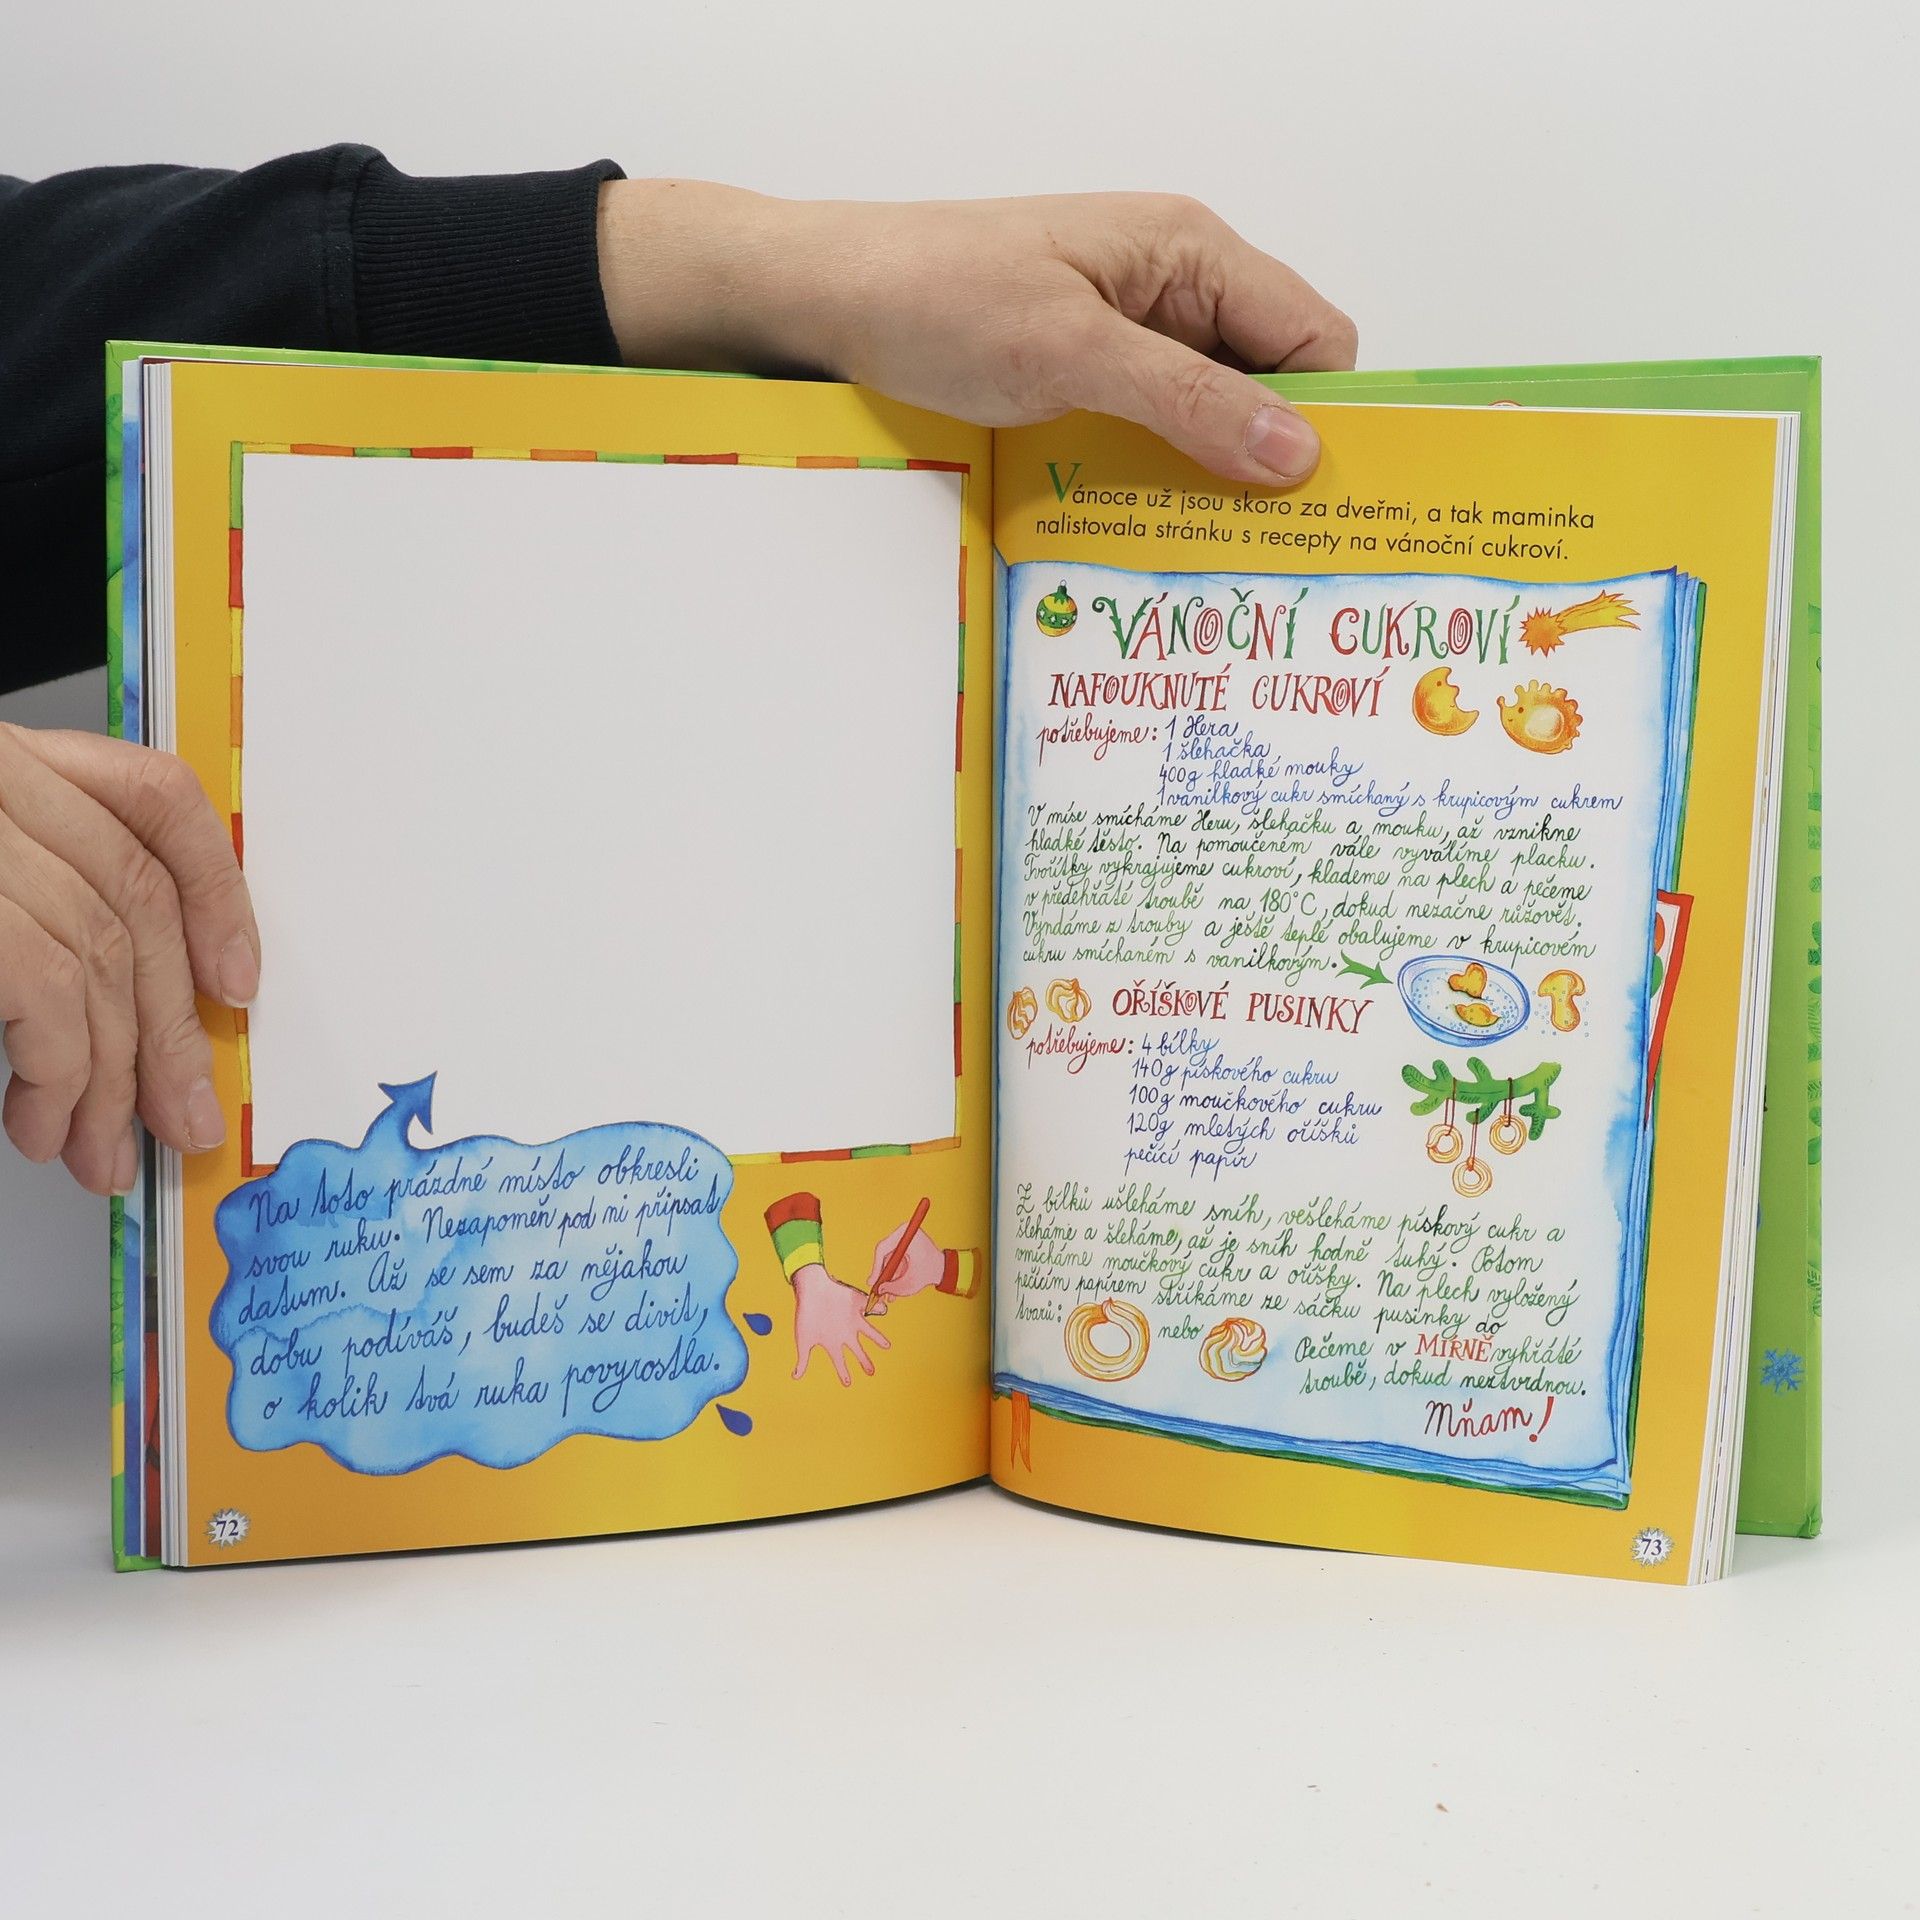 Na toto prázdné místo obkresli
svou ruku. Nezapomeň pod ni připsat
datum. Až se sem za nějakou
dobu podíváš, budeš se divit,
o kolik tvá ruka povyrostla.
72
Vánoce už jsou skoro za dveřmi, a tak maminka
nalistovala stránku s recepty na vánoční cukroví.
VÁNOČNÍ CUKROVÍ
NAFOUKNUTÉ CUKROVÍ
potřebujeme: 1 Hera
1 šlehačka
400g hladké mouky
1 vanilkový cukr smíchaný s krupicovým cukrem
V míse smícháme Heru, šlehačku a mouku, až vznikne
hladké těsto. Na pomoučeném vále vyválíme placku.
Tvořítky vykrajujeme cukroví, klademe na plech a pečeme
v předehřáté troubě na 180°C, dokud nezačne růžovět.
Vyndáme z trouby a ještě teplé obalujeme v krupicovém
cukru smíchaném s vanilkovým.
OŘÍŠKOVÉ PUSINKY
potřebujeme: 4 bílky
140g pískového cukru
100g moučkového cukru
120g mletých oříšků
pečící papír
Z bílků ušleháme sníh, všleháme pískový cukr a
šleháme a šleháme, až je sníh hodně tuhý. Potom
vmícháme moučkový cukr a oříšky. Na plech vyložený
pečícím papírem stříkáme ze sáčku pusinky do
tvarů: nebo
Pečeme v MÍRNĚ vyhřáté
troubě, dokud neztvrdnou.
Mňam!
73